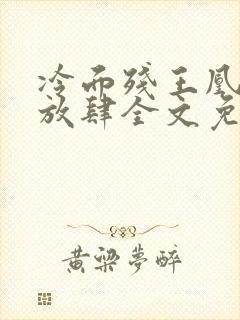 冷面残王凰
放肆全文免
黄梁夢醉